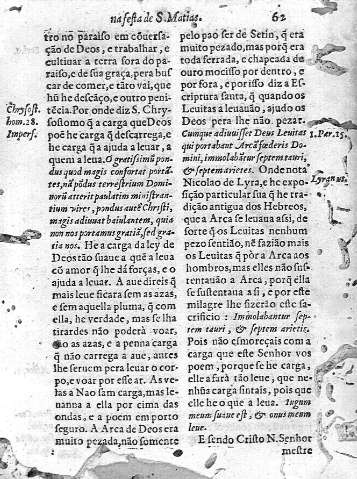 na festa de S. Matias. 62
tro no paraiso em cõuersa-
ção de Deos, e trabalhar, e
cultiuar a terra fora do pa-
raiso, e de sua graça, pera bus
car de comer, e tãto vai, que
hũ he descãço, e outro peni-
tẽcia. Por onde diz S. Chry-
sostomo q̃ a carga que Deos
põe he carga q̃ descarrega, e
he carga q̃ ajuda a leuar, a
quem a leua. O gratissimũ pon-
dus quod magis confortat portã-
tes, nã põdus terrestrium Domi-
norũ atterit paulatim ministran-
tium vires, pondus autẽ Chrysti,
magis adiuuat baiulantem, quia
non nos portamus gratiã, sed gra-
tia nos. He a carga da ley de
Deos tão suaue a quẽ a leua
cõ amor q̃ lhe dá forças, e o
ajuda a leuar. A aue direis q̃
mais leue ficara sem as azas,
e sem aquella pluma, q̃ com
ella, he verdade, mas se lha
tirardes não poderà voar,
as azas, e a penna carga
q̃ não carrega a aue, antes
lhe seruem pera leuar o cor-
po, e voar por esse ar. As ve-
las a Nao sam carga, mas le-
uanna a ella por cima das
ondas, e a poem em porto
seguro. A Arca de Deos era
muito pezada, não somente
Chrysost.
hom. 28.
Impers.
pelo pao ser de Setin, q̃ era
muito pezado, mas porq̃ era
toda serrada, e chapeada de
ouro mocisso por dentro, e
por fora, e por isso diz a Es-
criptura santa, q̃ quando os
Leuitas a leuauão, ajudo os
Deus pera lhe não pezar.
Cumque adiuuisset Deus Leuitas
qui portabant Arcã fœderis Do-
mini, immolabãtur septem tauri,
& septem arietes. Onde nota
Nicolao de Lyra, e he expo-
sição particular sua q̃ he tra-
dição antigua dos Hebreos,
que a Arca se leuaua assi, de
sorte q̃ os Leuitas nenhum
pezo sentião, nẽ fazião mais
os Leuitas q̃ pòr a Arca aos
hombros, mas elles não sus-
tentauão a Arca, porq̃ ella
se sustentaua a si, e por este
milagre lhe fizerão este sa-
crificio : Immolabantur sep-
tem tauri, & septem arietes.
Pois não esmoreçais com a
carga que este Senhor vos
poem, porque se he carga,
ella a fará tão leue, que ne-
nhũa carga sintais, pois que
elle he o que a leua. Iugum
meum suaue est, & onus meum
leue.
E sendo Cristo N. Senhor
mestre
1. Par. 15.
Lyran ut.